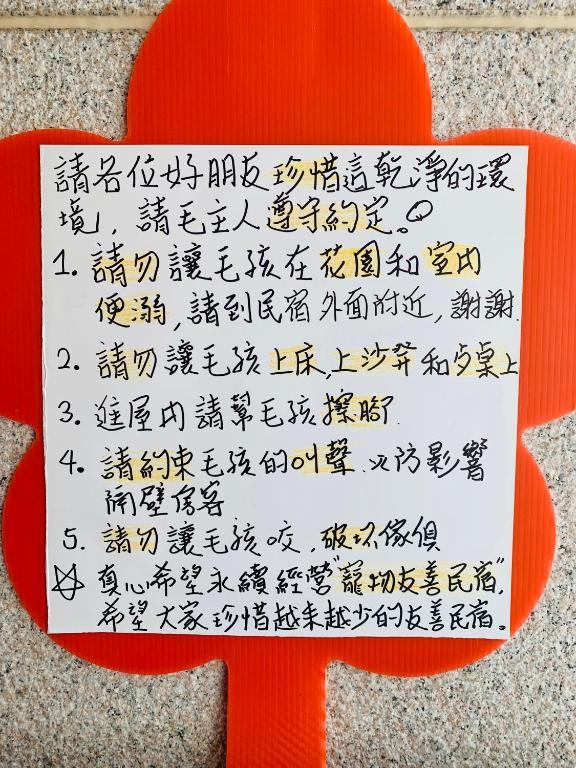 請各位好朋友珍惜這乾淨的環
境，請毛主人遵守約定。
1. 請勿讓毛孩在花園和室內
便溺，請到民宿外面附近，謝謝.
2. 請勿讓毛孩上床，上沙發和桌上
3. 進屋內請幫毛孩擦腳.
4. 請約束毛孩的叫聲.以防影響
隔壁房客
5. 請勿讓毛孩咬，破坏傢俱
☆ 真心希望永續經營"寵物友善民宿"，
希望大家珍惜越來越少的友善民宿。